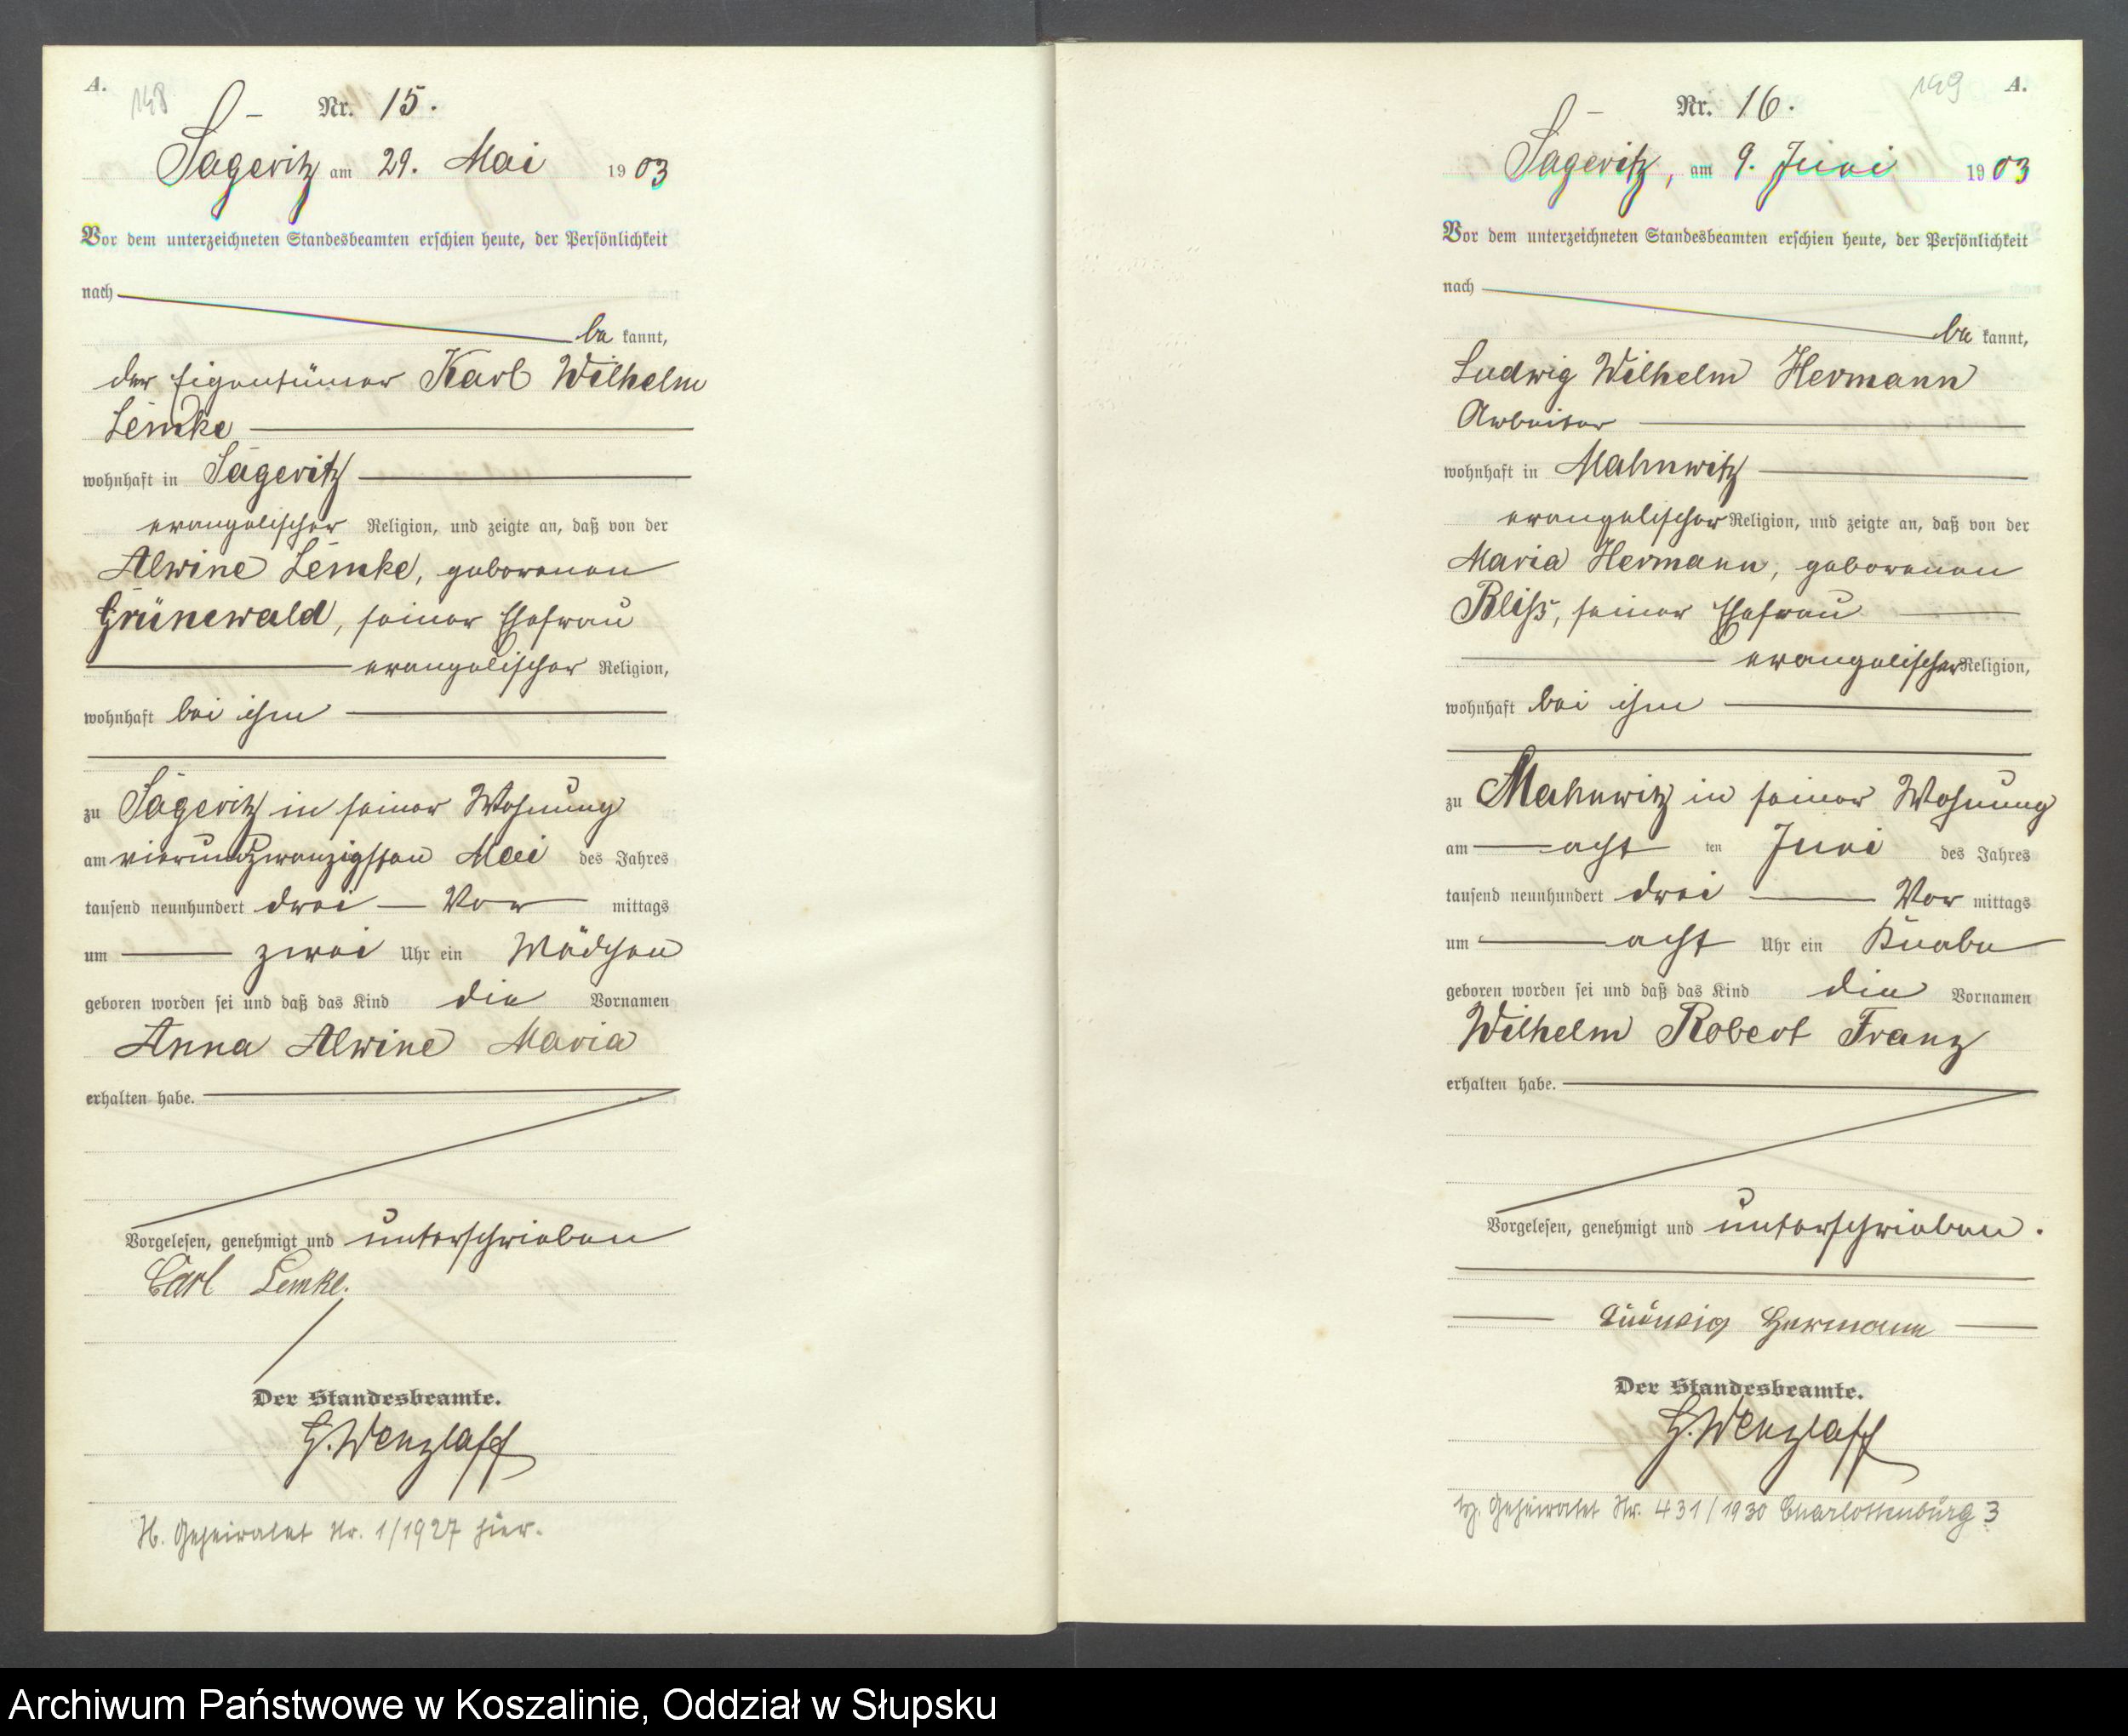 A.
148
Nr. 15.
Sageritz am 29. Mai 1903
Vor dem unterzeichneten Standesbeamten erschien heute, der Persönlichkeit
nach
be kannt,
der Eigentümer Karl Wilhelm
Lemke
wohnhaft in Sageritz
evangelischer Religion, und zeigte an, daß von der
Alwine Lemke, geborenen
Grünewald, seiner Ehefrau
evangelischer Religion,
wohnhaft bei ihm
zu Sageritz in seiner Wohnung
am vierundzwanzigsten Mai des Jahres
tausend neunhundert drei Vor mittags
um zwei Uhr ein Mädchen
geboren worden sei und daß das Kind die Vornamen
Anna Alwine Maria
erhalten habe.
Vorgelesen, genehmigt und unterschrieben
Carl Lemke.
Der Standesbeamte.
G. Wenzlaff
H. Geheiratet Nr. 1/1927 hier.
149
A.
Nr. 16.
Sageritz, am 9. Juni 1903
Vor dem unterzeichneten Standesbeamten erschien heute, der Persönlichkeit
nach
be kannt,
Ludwig Wilhelm Hermann
Arbeiter
wohnhaft in Mahnwitz
evangelischer Religion, und zeigte an, daß von der
Maria Hermann, geborenen
Bliß, seiner Ehefrau
evangelischer Religion,
wohnhaft bei ihm
zu Mahnwitz in seiner Wohnung
am acht ten Juni des Jahres
tausend neunhundert drei Vor mittags
um acht Uhr ein Knabe
geboren worden sei und daß das Kind die Vornamen
Wilhelm Robert Franz
erhalten habe.
Vorgelesen, genehmigt und unterschrieben.
Ludwig Hermann
Der Standesbeamte.
G. Wenzlaff
Geheiratet Nr. 431/1930 Charlottenburg 3
Archiwum Państwowe w Koszalinie, Oddział w Słupsku